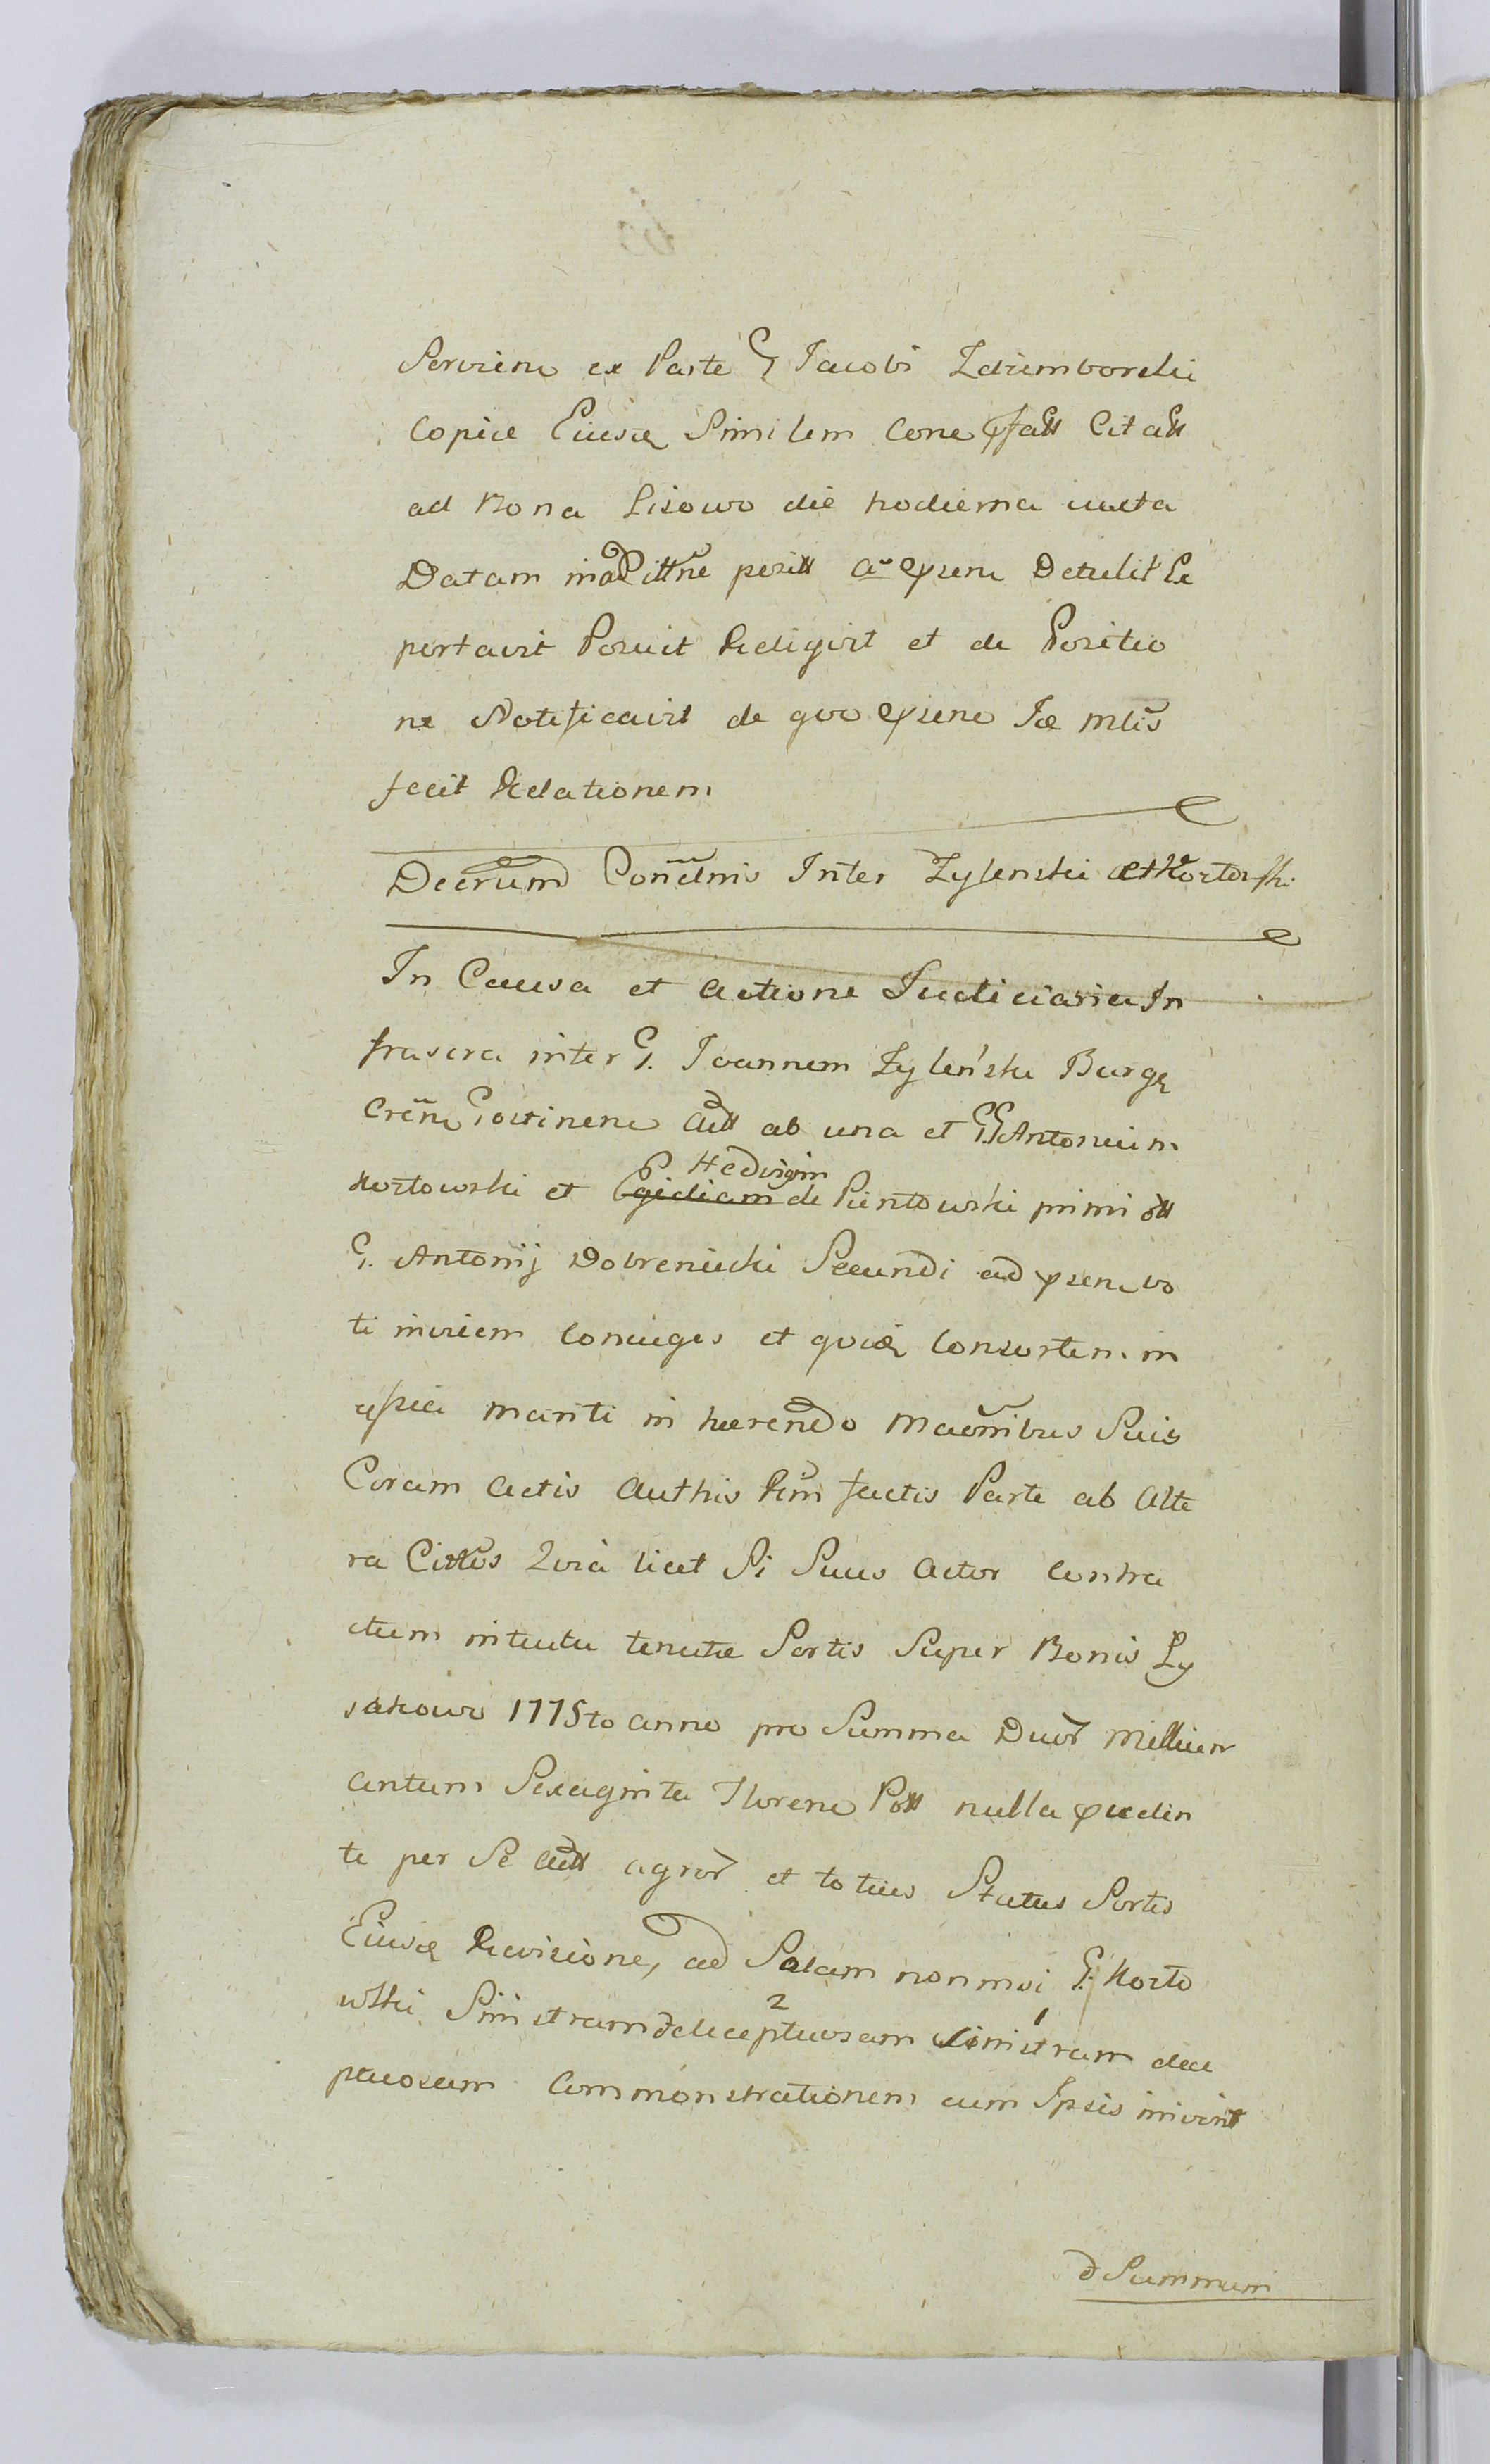 Servien ex Parte G Jacobi Zdrimborski
Copiæ Eiusq Similem Cone pfatt Citatt
ad Bona Lisowo die hodierna iuxta
Datam in Cittne positt a psene Detulit Re
portavit Posuit Redigivit et de Positio
ne Notificavit de quo psene Jæ mlis
fecit Relationem
Decrum Condnis Inter Zylenski et Kortowski
In Causa et actione Judiciaria In
frascra inter G. Joannem Zyleński Burg
Cren Gostinene Actt ab una et GG Antonium
Kortowski et Egidiam Hedvigim de Pientowski primi ott
G. Antonij Dobreniecki Secundi ad psen vo
ti invicem Coniuges et quidq Consortem in
assia mariti in hærendo Maonibus Suis
Coram Actis Authis Rm factis Parte ab Alte
ra Cittos Quia licet Is Suus Actor Contra
ctum intuitu tenutæ Sortis Super Bonis Ly
sakowo 1775to anno pro Summa Duor Millium
Centum Sexaginta Floren Poll nulla præden
te per Se actt agror et totius Status Sortis
Eiusq Revisione, ad Solam nonmsi G. Korto
wski Sinistram deceptuosam 2 sinistram 1 dece
ptuosam Commonstrationem cum Ipsis inivit
d Summam